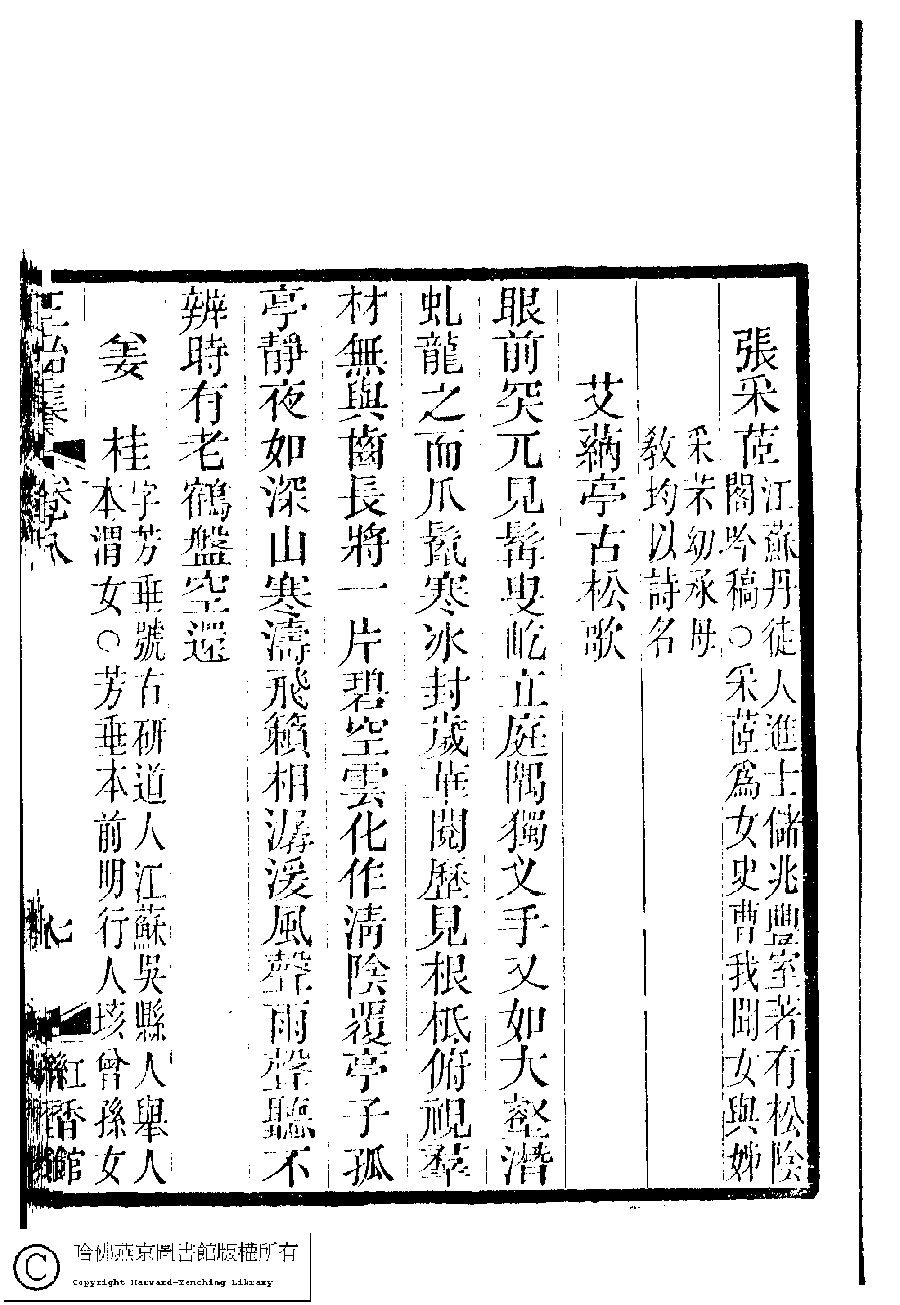 張采茝江蘇丹徒人進士儲兆豐室著有松陰
閣吟稿○采茝爲女史曹我聞女與姊
采芣幼承母
教均以詩名
艾蒳亭古松歌
眼前突兀見髯叟屹立庭隅獨叉手又如大壑潛
虬龍之而爪鬣寒冰封歲華閱歷見根柢俯視羣
材無與齒長將一片碧空雲化作清陰覆亭子孤
亭靜夜如深山寒濤飛籟相潺湲風聲雨聲聽不
辨時有老鶴盤空還
姜桂字芳垂號古研道人江蘇吳縣人舉人
本渭女○芳垂本前明行人垓曾孫女
正始集 卷八 七 紅香館
哈佛燕京圖書館版權所有
Copyright Harvard-Yenching Library